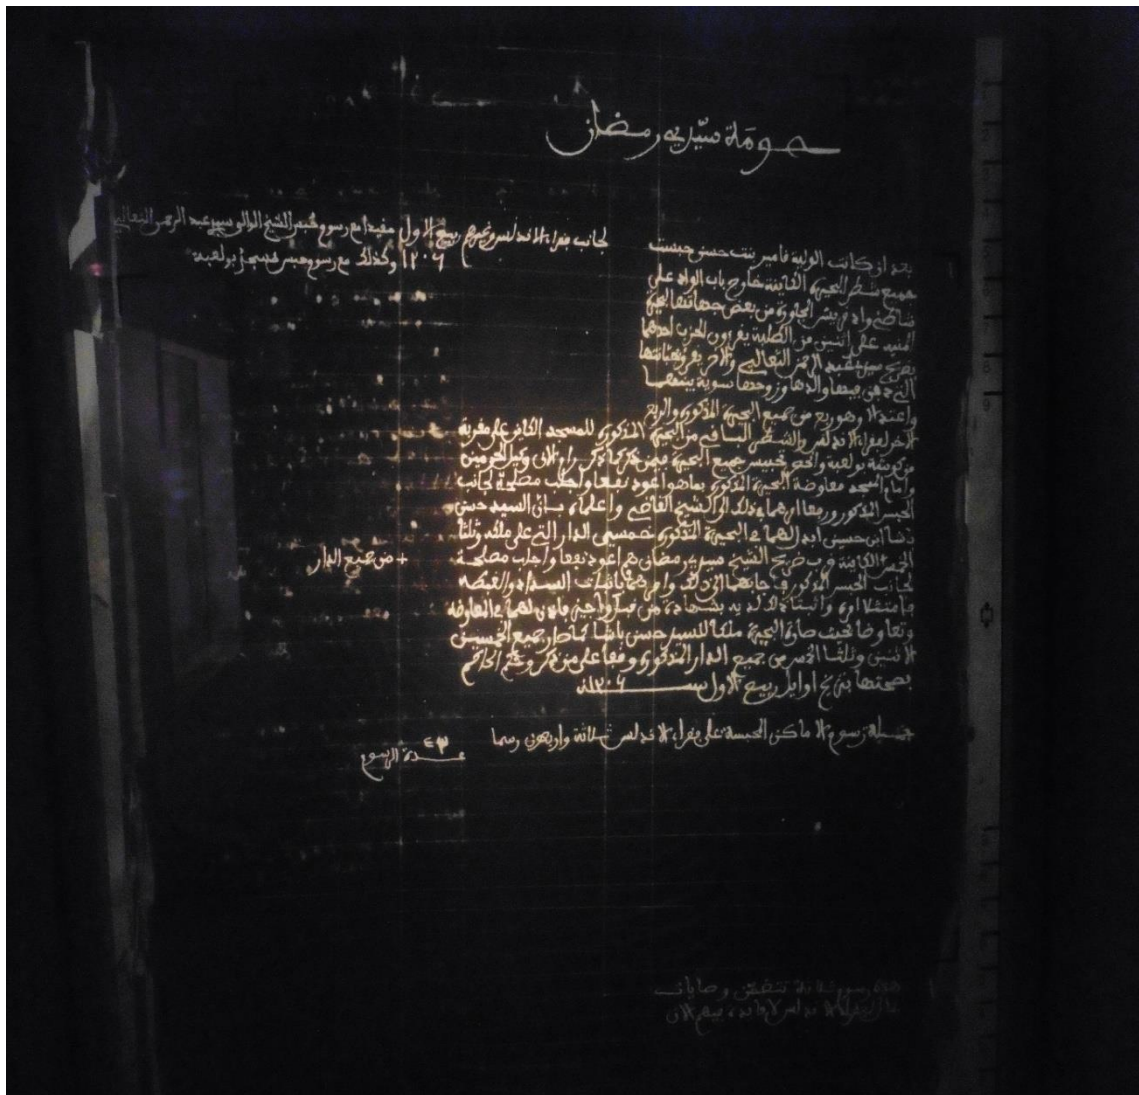 حومة سيدي رمضان
لجانب فقراء الاندلس وغيرهم ربيع الاول مفيدا مع رسوم الشيخ الوالي سيدي عبد الرحمن الثعالبي
١٢٠٦ وكذلك مع رسوم حبس مسجد بولقبة
بعد ان كانت الولية بنت حسن حبست
جميع شطر البحيرة الكاينة خارج باب الواد على
من بعض جهاتها البحيرة
على اثنين من الطلبة يقرءون الحزب احدهما
بضريح سيدي عبد الرحمن الثعالبي والاخر
والدها وزوجها سوية بينهما
وهو ربع من جميع البحيرة المذكورة والربع
الاخر لفقراء الاندلس والشطر الباقي من البحيرة المذكورة للمسجد الكاين على مقربة
من كوشة بولقبة جميع البحيرة فيمن ذكر كما ذكر رام الان وكيل الحرمين
وامام المسجد معاوضة البحيرة المذكورة بما هو اعود نفعا واجلب مصلحة لجانب
الحبس المذكور ورفعا امرهما في ذلك الى الشيخ القاضي واعلماه بان السيد حسن
باشا ابن حسين ابدل لهما في البحيرة المذكورة خمسي الدار التي على ملكه وثلثا
الخمس الكاينة قرب ضريح الشيخ سيدي رمضان هم اعود نفعا واجلب مصلحة
+ من جميع الدار
لجانب الحبس المذكور في جانبهما الى ذلك وامرهما باثبات السداد والغبطة
فامتثلا امره واثبتا ذلك لديه بشهادة من فاذن لهما في المعاوضة
وتعاوضا بحيث صارة البحيرة ملكا للسيد حسن باشا كما صار جميع الخمسين
الاثنين وثلثا الخمس من جميع الدار المذكورة وقفا على من ذكر وحكم الحاكم
بصحتها بتاريخ اوايل ربيع الاول سنة ١٢٠٦
جملة رسوم الاماكن الحبسة على فقراء الاندلس ثلاثة واربعون رسما
٤٣
عدة الرسوم
هذه رسوم ثلاثة تتضمن وصايات
الان